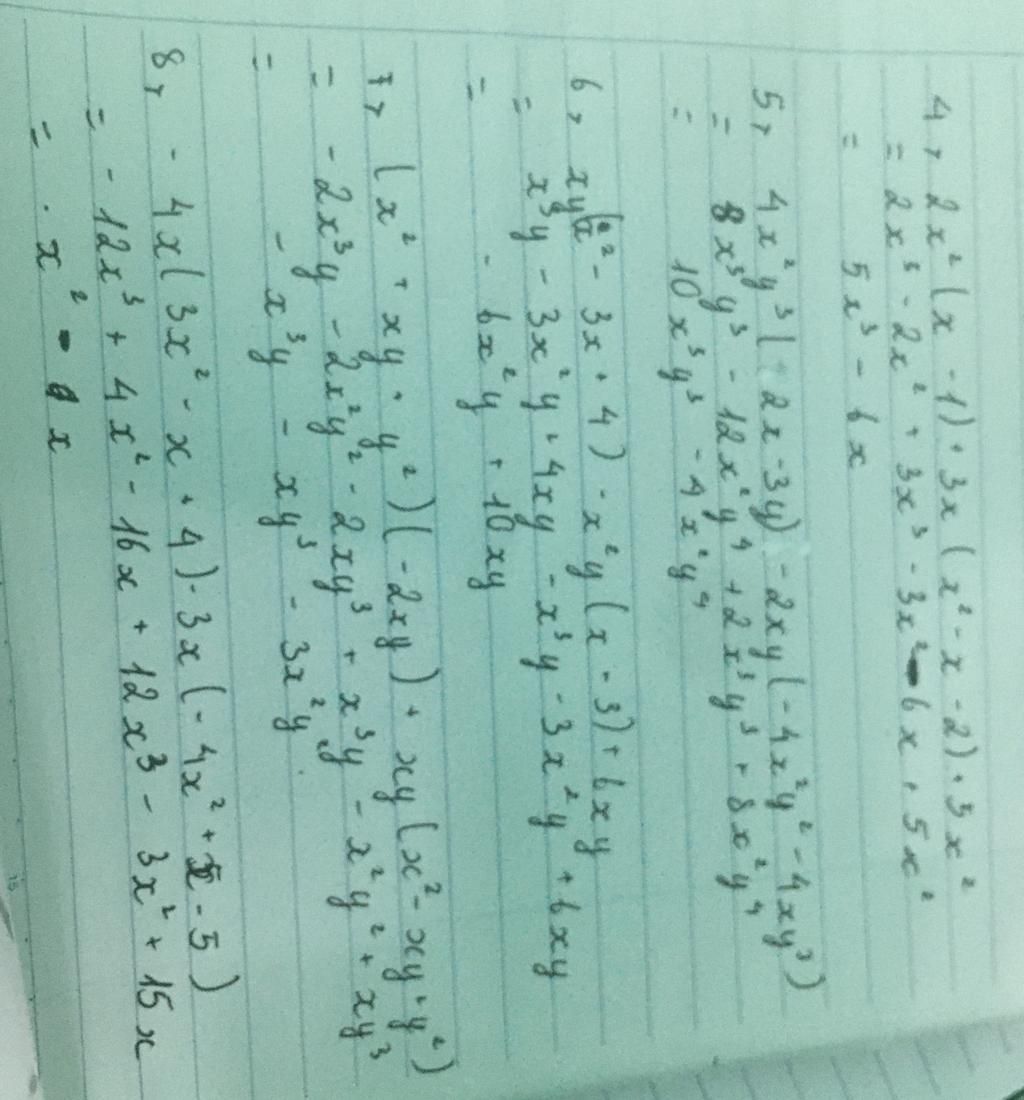 4, 2x² (x - 1) + 3x (x² - x - 2) + 5x²
= 2x³ - 2x² + 3x³ - 3x² - 6x + 5x²
= 5x³ - 6x
5, 4x²y³ (2x - 3y) - 2xy (-4x²y² - 4xy³)
= 8x³y³ - 12x²y⁴ + 2x³y³ + 8x²y⁴
= 10x³y³ - 4x²y⁴
6, xy(x² - 3x + 4) - x²y (x - 3) + 6xy
= x³y - 3x²y + 4xy - x³y - 3x²y + 6xy
= - 6x²y + 10xy
7, (x² + xy + y²)(-2xy) + xy (x² - xy + y²)
= - 2x³y - 2x²y² - 2xy³ + x³y - x²y² + xy³
= - x³y - xy³ - 3x²y
8, - 4x (3x² - x + 4) - 3x (-4x² + x - 5)
= - 12x³ + 4x² - 16x + 12x³ - 3x² + 15x
= x² - x